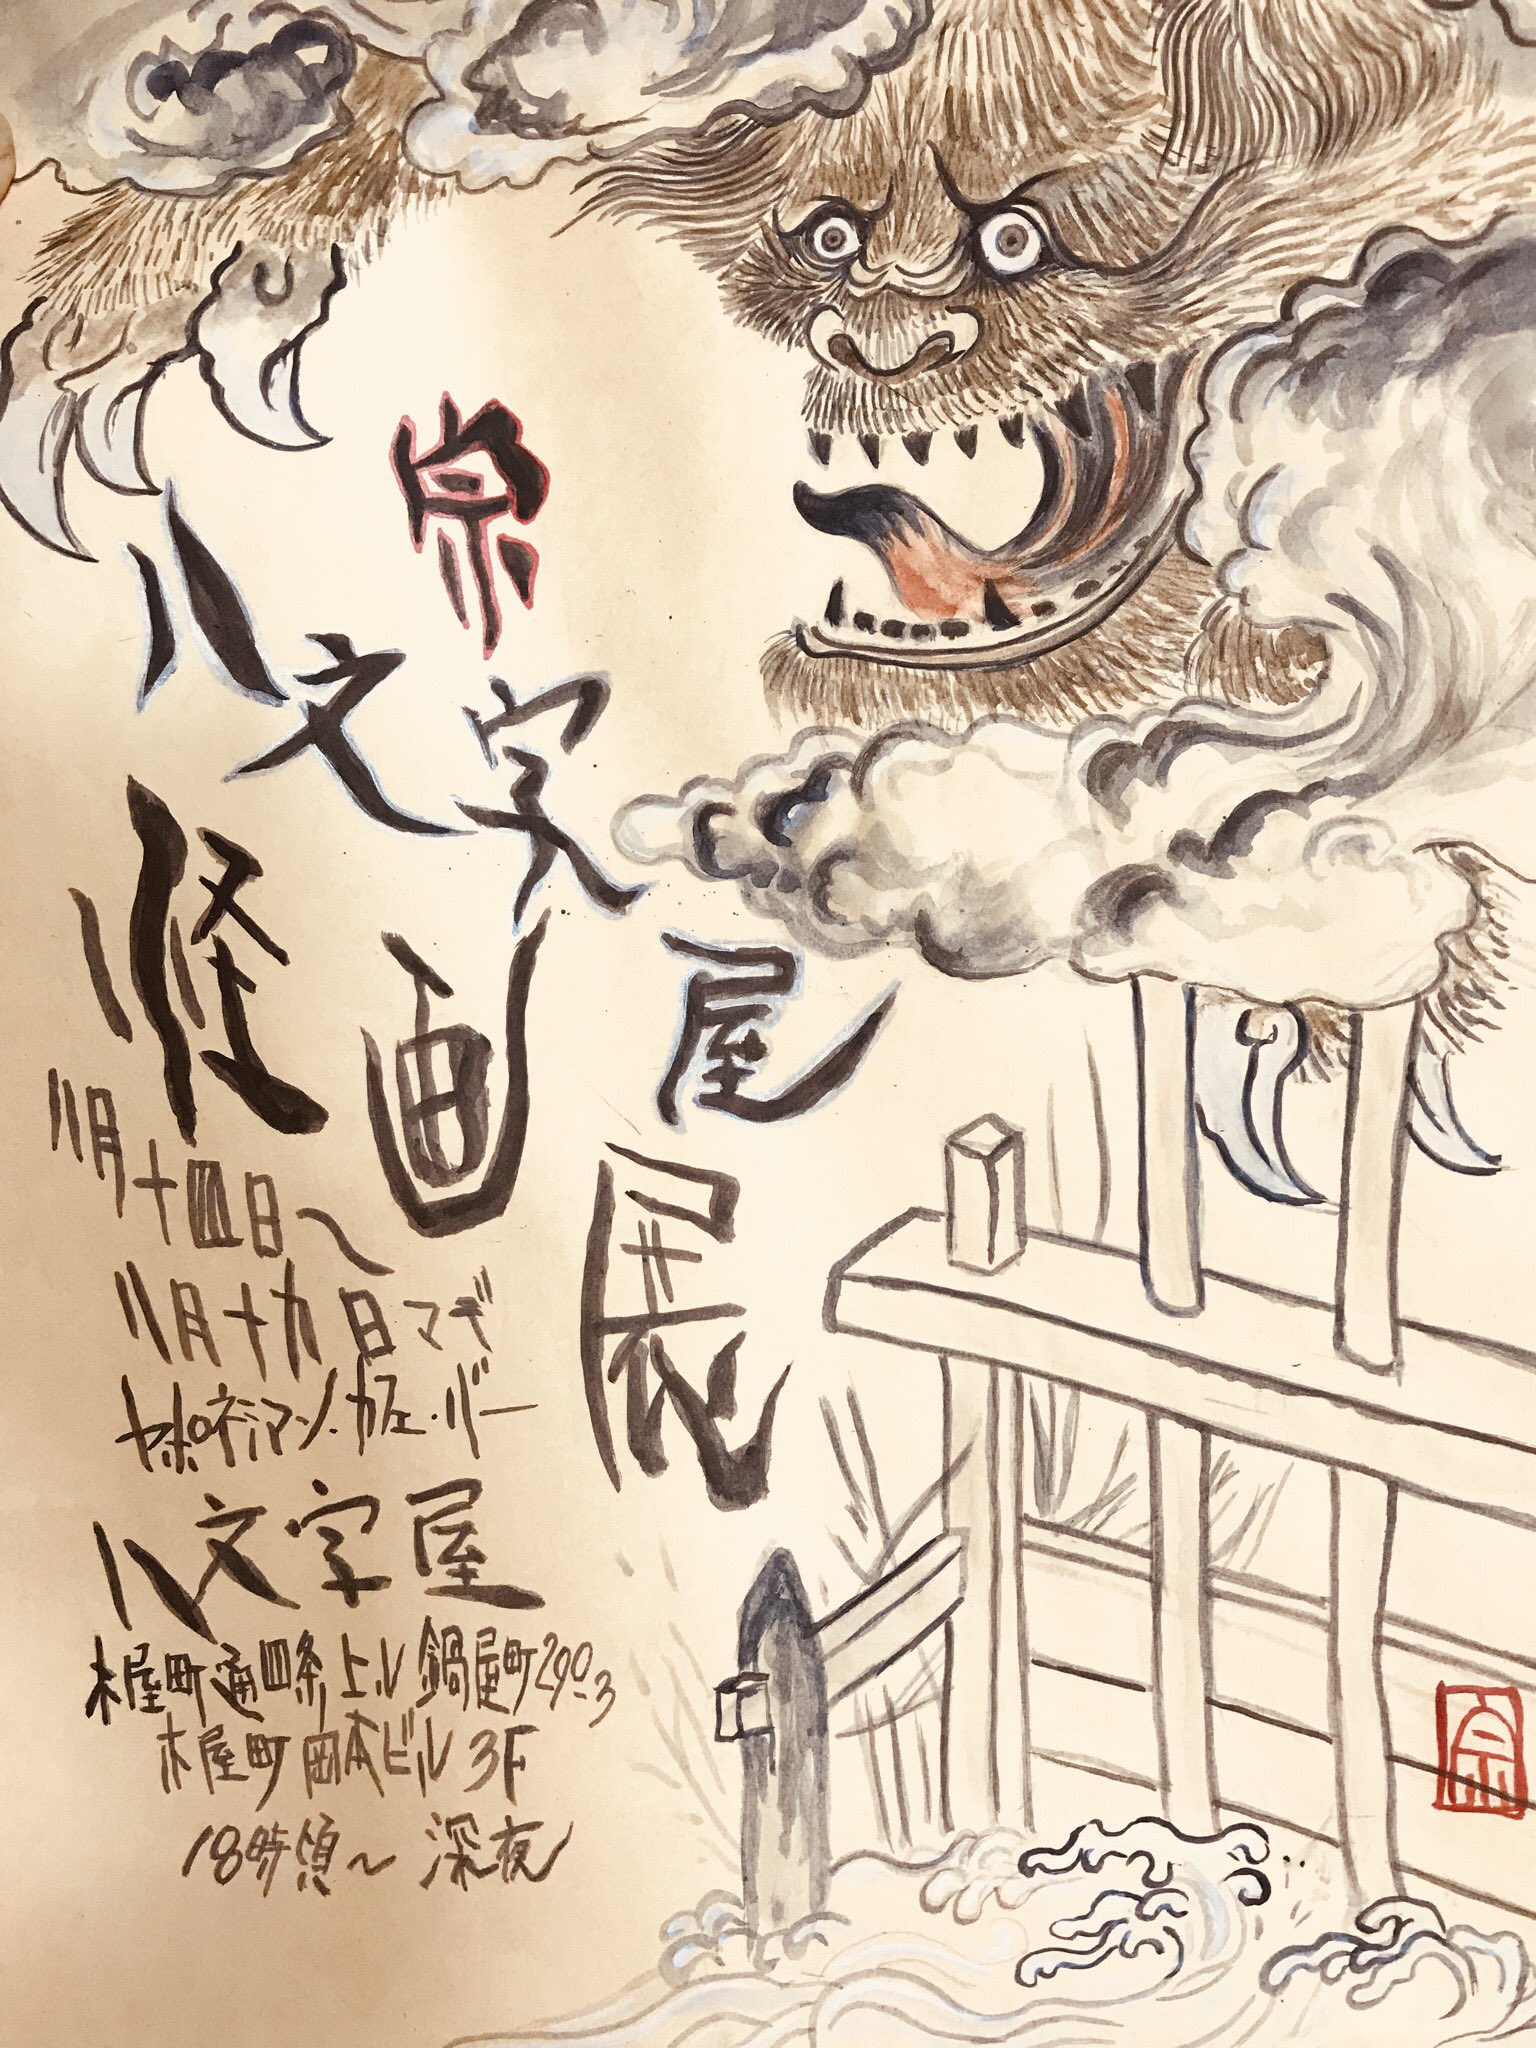 八文字屋
怪画展
八月十四日〜
八月十九日マデ
ヤポネシアン・カフェ・バー
八文字屋
木屋町通四条上ル鍋屋町290-3
木屋町岡本ビル3F
18時頃〜深夜